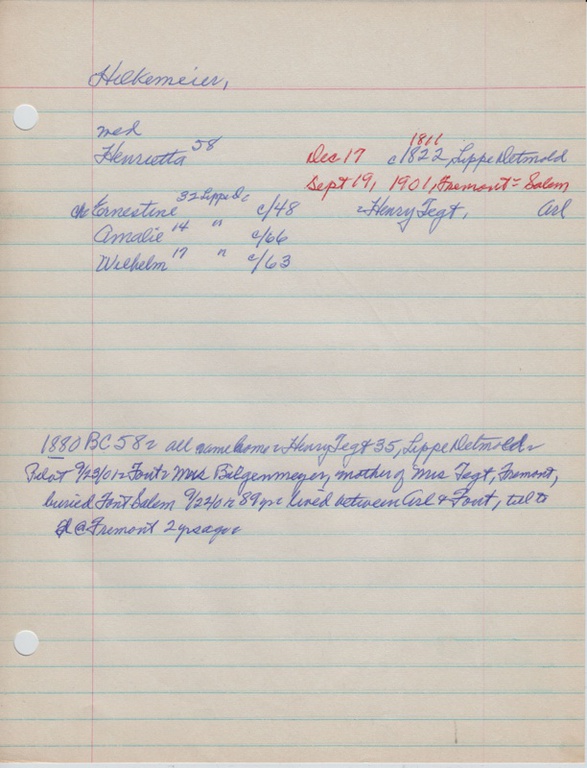 Hilkemeier,
med
Henrietta 58 Dec 17 1811 c1822, Lippe Detmold
Sept 19, 1901, Fremont - Salem
ch Ernestine 32 Lippe D c/48 Henry Tegt, Arl
Amalie 14 " c/66
Wilhelm 17 " c/63
1880 BC 58 all same home Henry Tegt 35, Lippe Detmold
Pilot 9/23/01 Font Mrs Bilgenmeyer, mother of Mrs Tegt, Fremont,
buried Font Salem 9/22/01 89 yr lived between Arl & Font, til to
@ Fremont 2 yrs ago